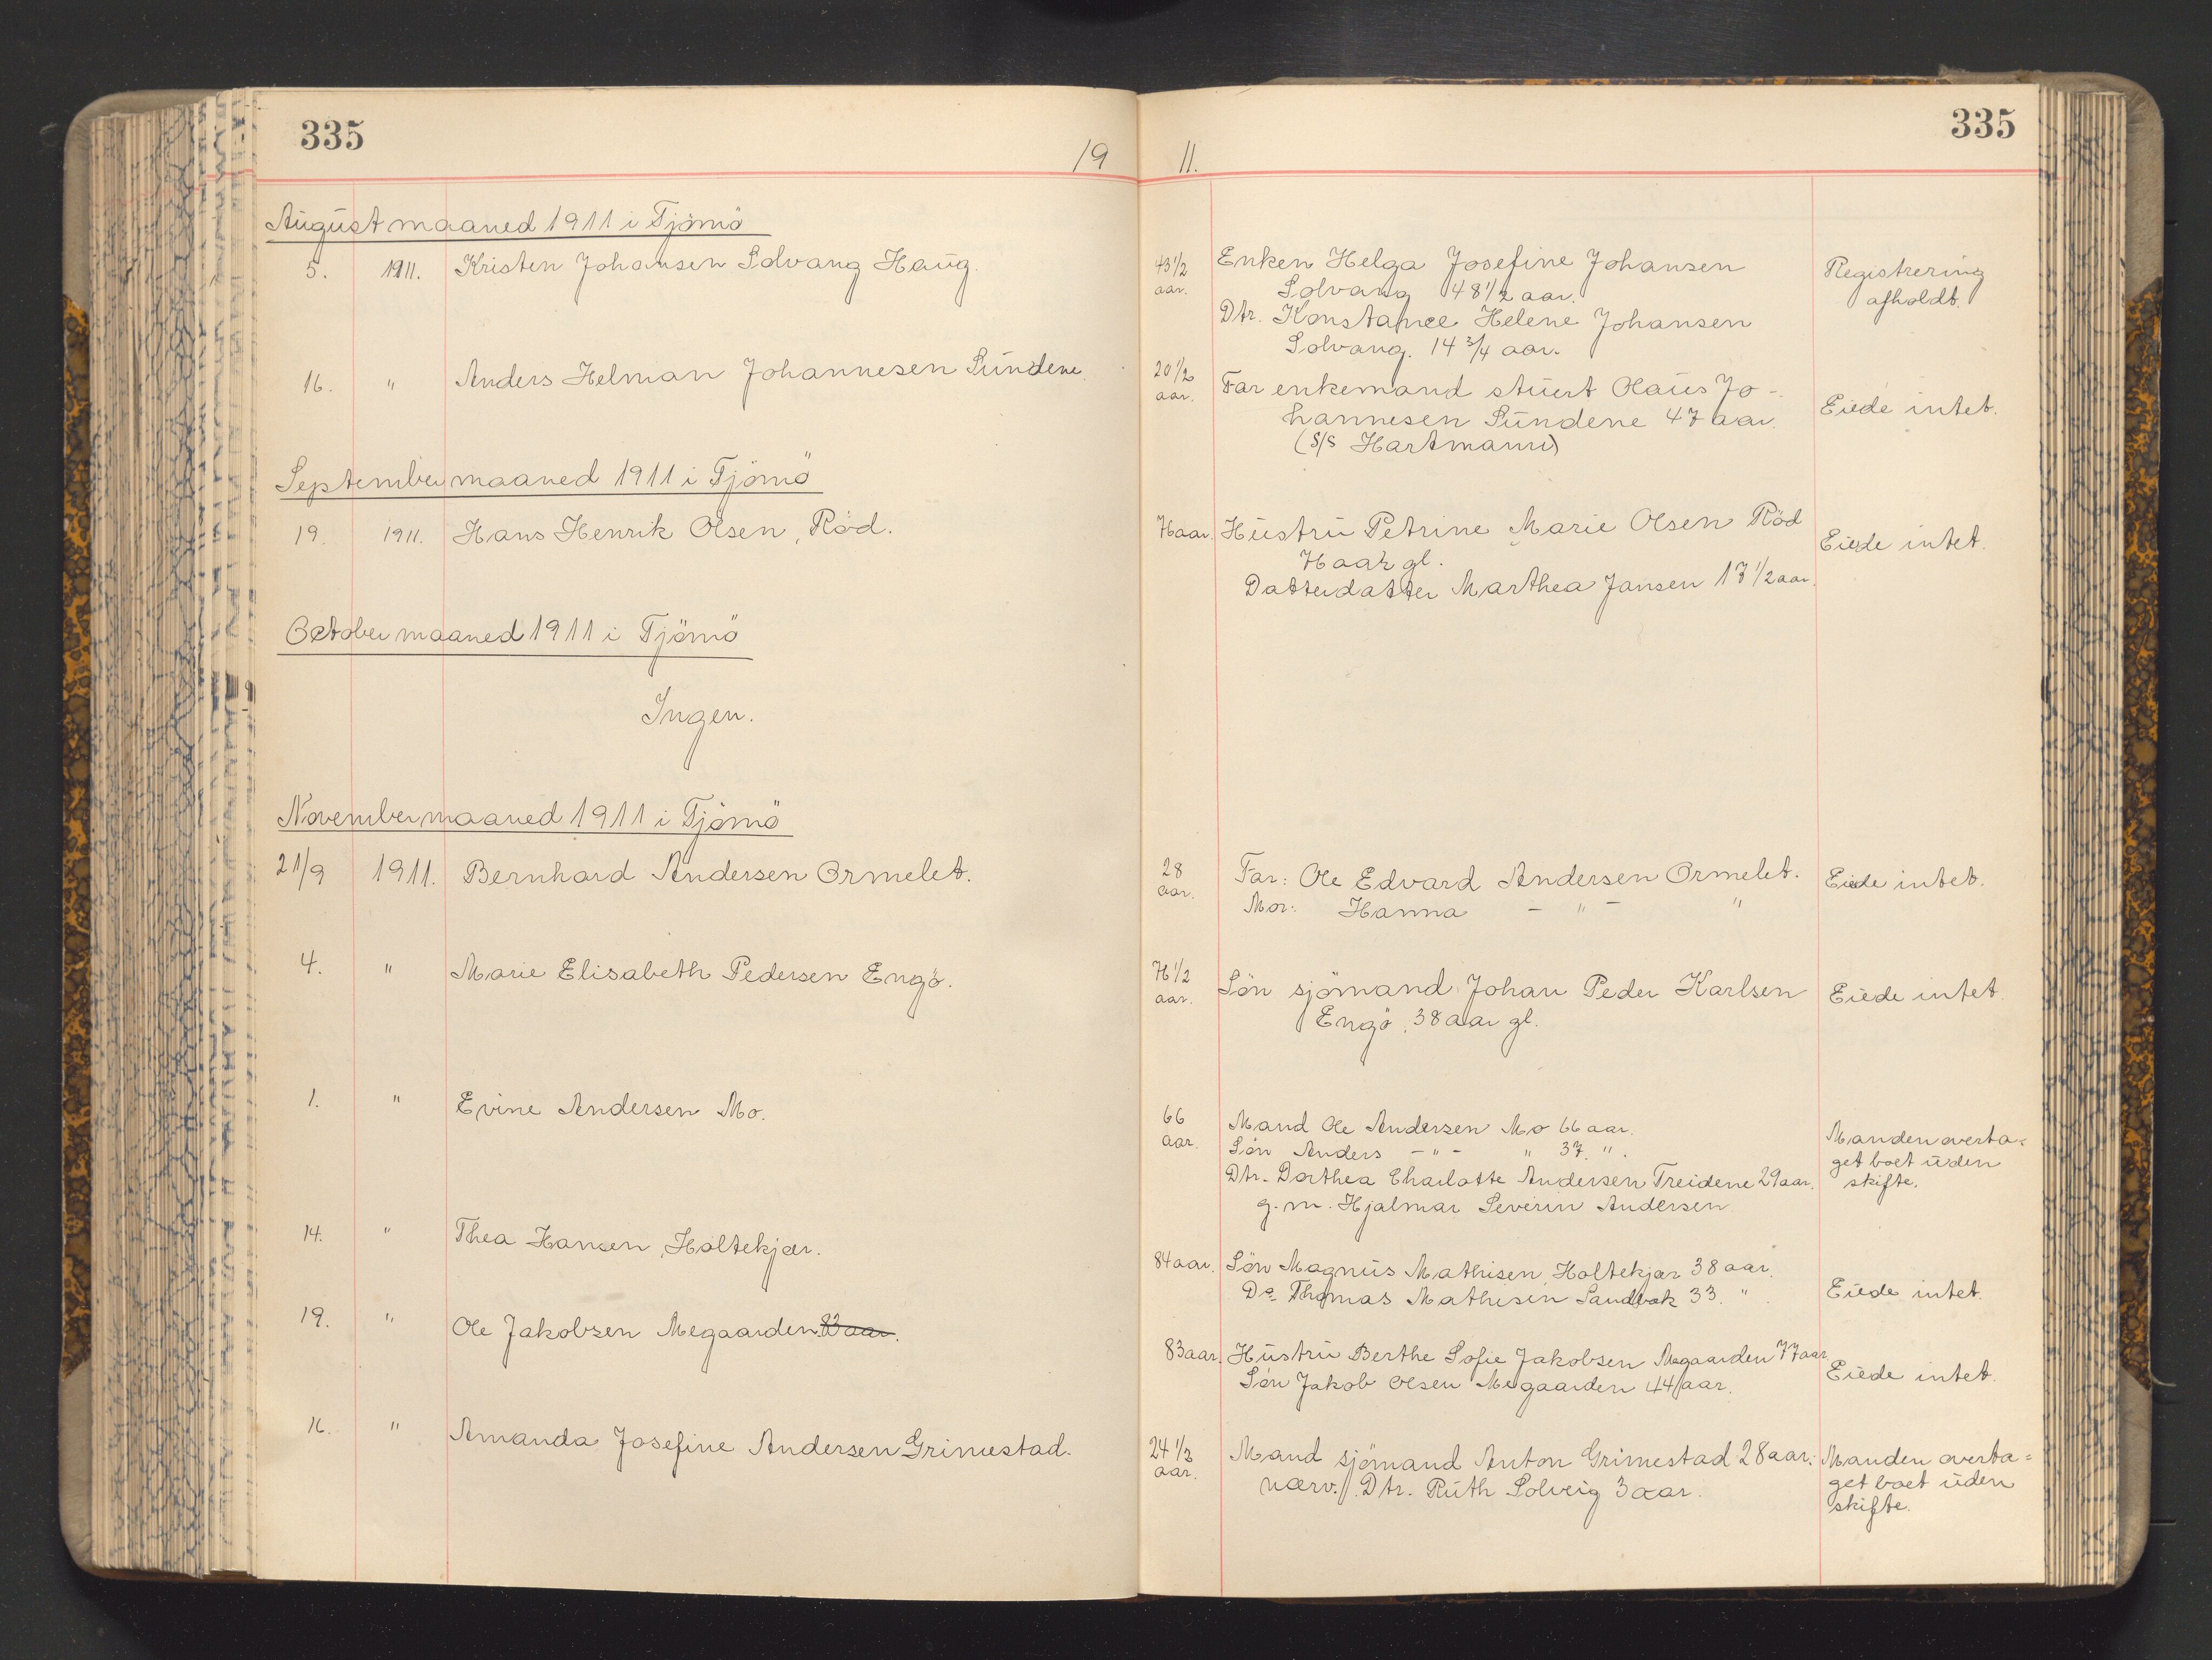 335
335
19 11.
August maaned 1911 i Tjömö
5. 1911. Kristen Johansen Solvang Haug.
43 1/2 aar.
Enken Helga Josefine Johansen
Solvang 48 1/2 aar.
Dtr. Konstance Helene Johansen
Solvang. 14 3/4 aar.
Registrering
afholdt.
16. " Anders Helman Johannesen Sundene.
20 1/2 aar.
Far enkemand stuert Olaus Jo-
hannesen Sundene 47 aar.
(S/S Hartmann)
Eiede intet.
September maaned 1911 i Tjömö
19. 1911. Hans Henrik Olsen, Röd.
76 aar.
Hustru Petrine Marie Olsen Röd
76 aar gl.
Datterdatter Marthea Jansen 17 1/2 aar.
Eiede intet.
October maaned 1911 i Tjömö
Ingen.
November maaned 1911 i Tjömö
21/9 1911. Bernhard Andersen Ormelet.
28 aar.
Far: Ole Edvard Andersen Ormelet.
Mor: Hanna - " - "
Eiede intet.
4. " Marie Elisabeth Pedersen Engö.
76 1/2 aar.
Sön sjömand Johan Peder Karlsen
Engö, 38 aar gl.
Eiede intet.
1. " Evine Andersen Mo.
66 aar.
Mand Ole Andersen Mo 66 aar.
Sön Anders - " - " 37. ".
Dtr. Dorthea Charlotte Andersen Treidene 29 aar.
g. m. Hjalmar Severin Andersen
Manden overta=
get boet uden
skifte.
14. " Thea Hansen, Holtekjær.
84 aar.
Sön Magnus Mathisen, Holtekjær 38 aar.
Do Thomas Mathisen Sandbæk 33. ".
Eiede intet.
19. " Ole Jakobsen Megaarden 83 aar.
83 aar.
Hustru Berthe Sofie Jakobsen Megaarden 77 aar
Sön Jakob Olsen Megaarden 44 aar.
Eiede intet.
16. " Amanda Josefine Andersen Grimestad.
24 1/2 aar.
Mand sjömand Anton Grimestad 28 aar.
nærv. Dtr. Ruth Solveig 3 aar.
Manden overta=
get boet uden
skifte.